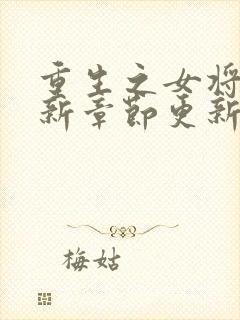 重生之女将
新章节更新
梅姑